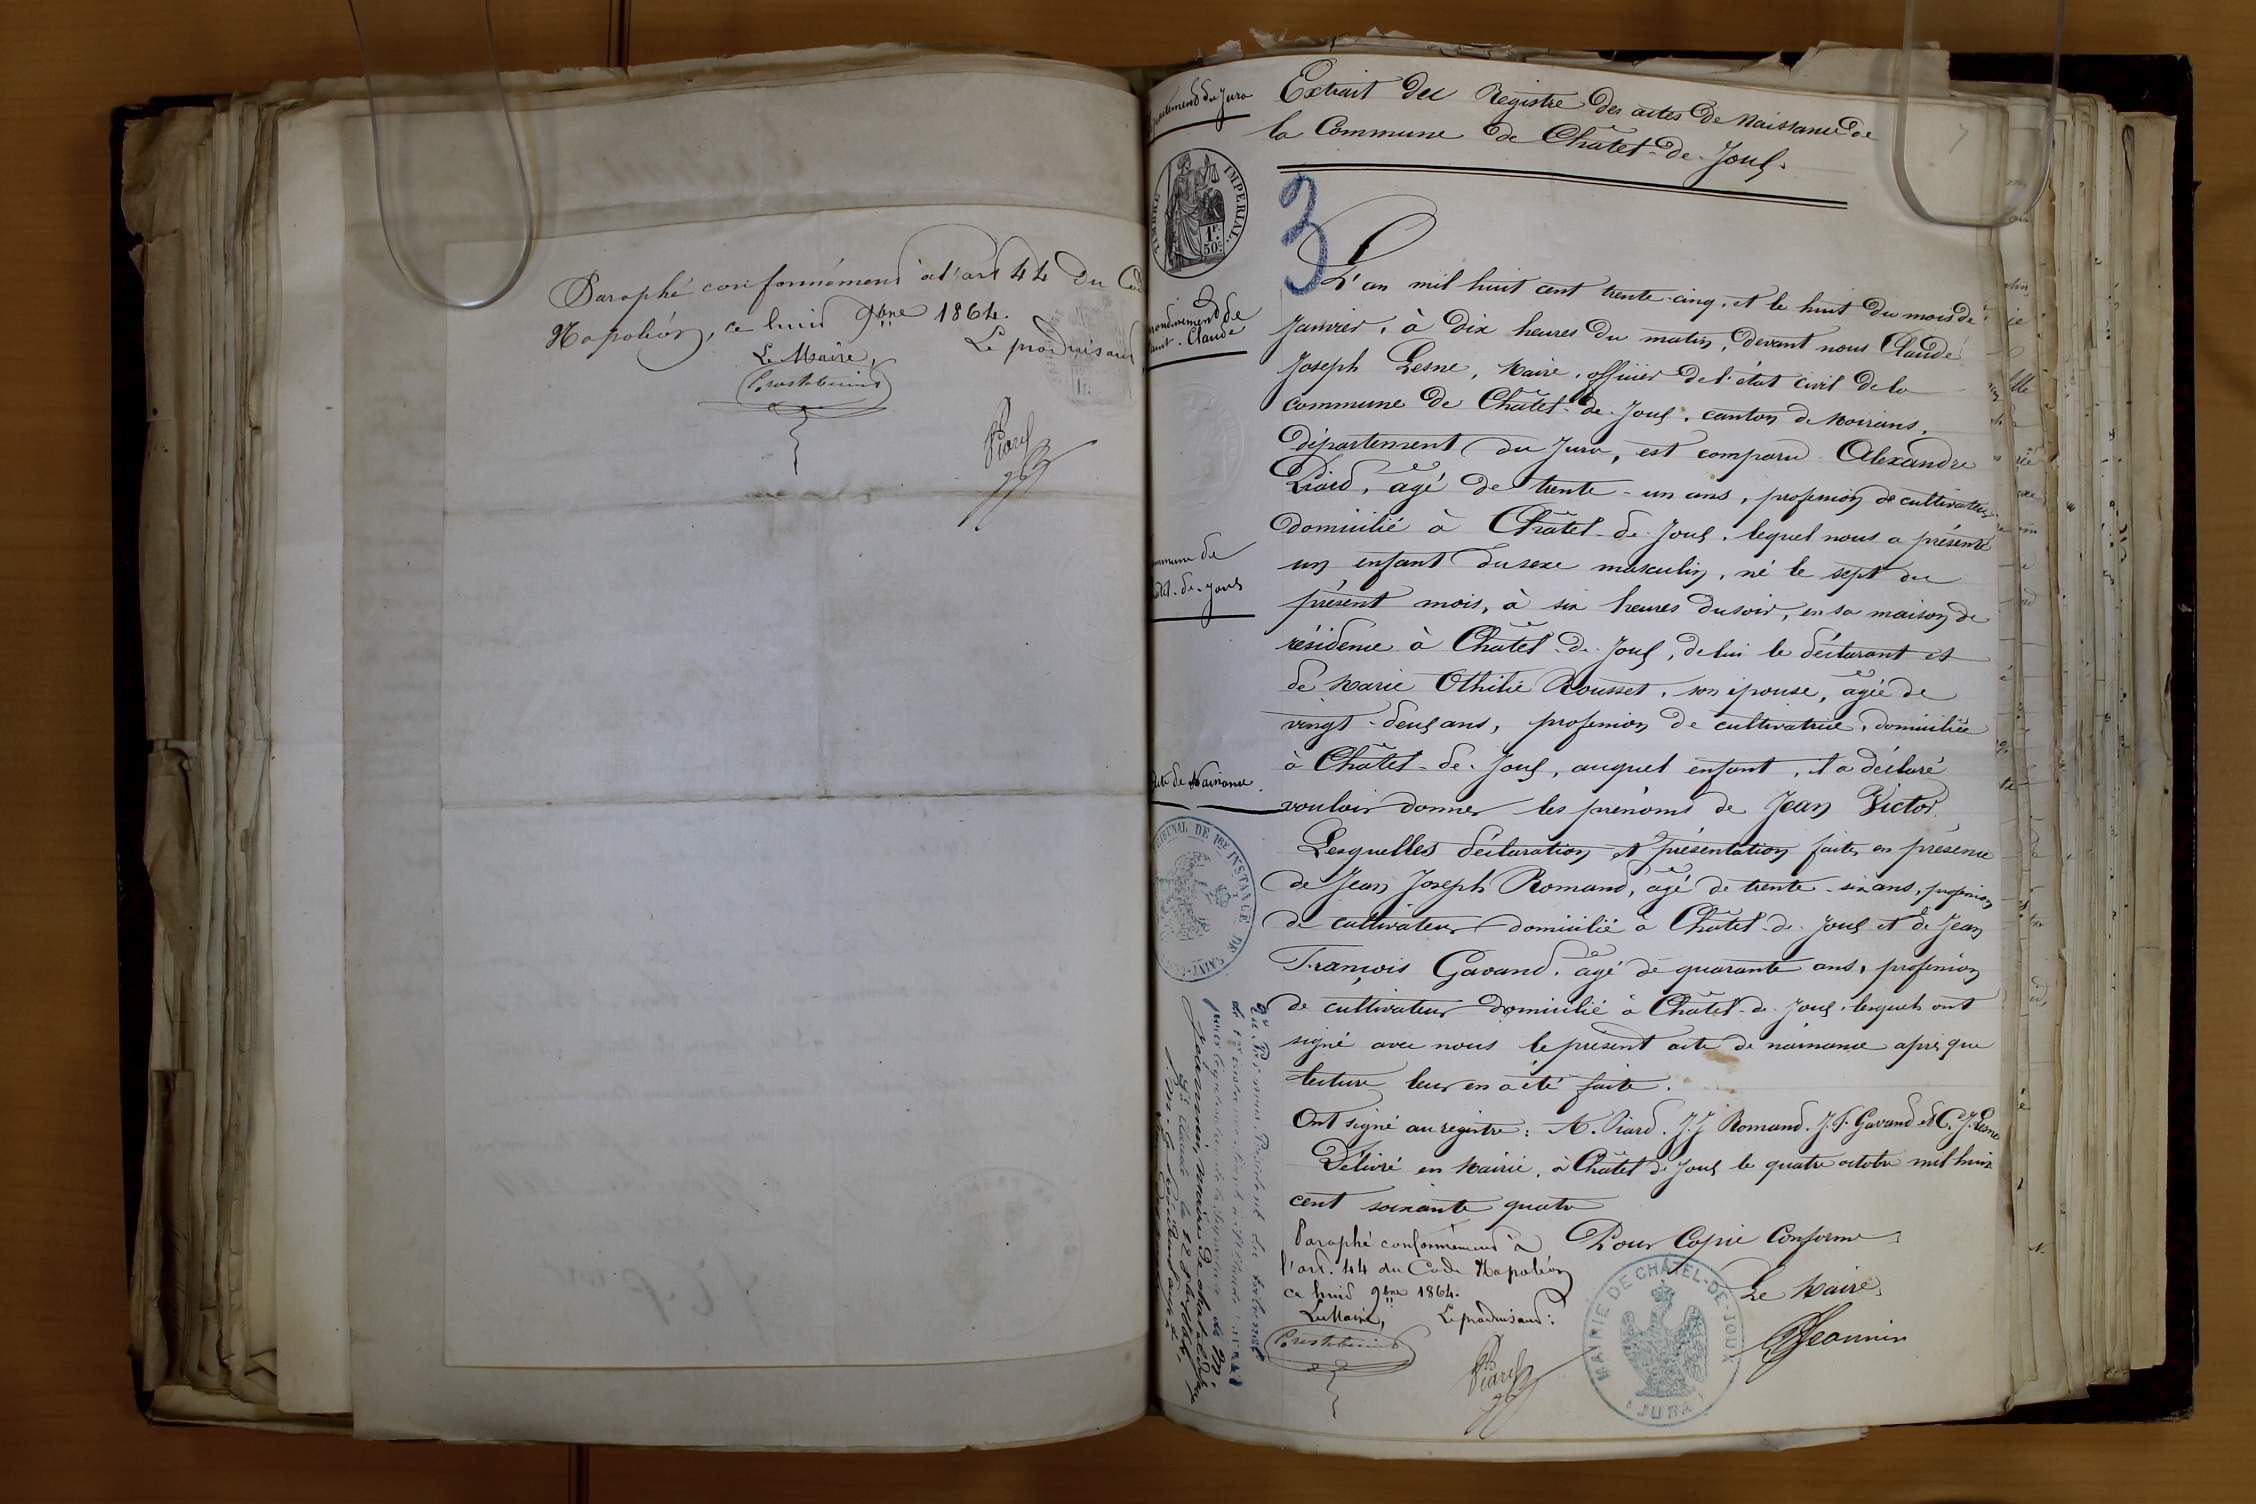 Paraphé conformément à l'art 44 du
Napoléon, ce huit 9bre 1864.
Le Maire,
Le produisant
Extrait du Registre des actes de Naissance de
la Commune de Châtel-de-Joux.
TIMBRE IMPERIAL.
1F.
50c
Claude
3
L'an mil huit cent trente-cinq, et le huit du mois de
Janvier, à dix heures du matin, devant nous Claude
Joseph Lesne, Maire, officier de l'état civil de la
commune de Châtel-de-Joux, canton de Moirans,
département du Jura, est comparu Alexandre
Piard, agé de trente-un ans, profession de cultivateur
domicilié à Châtel-de-Joux, lequel nous a présenté
un enfant du sexe masculin, né le sept du
présent mois, à six heures du soir, en sa maison de
résidence à Châtel-de-Joux, de lui le déclarant et
de Marie Othilie Rousset, son épouse, agée de
vingt-deux ans, profession de cultivatrice, domiciliée
à Châtel-de-Joux, auquel enfant, il a déclaré
vouloir donner les prénoms de Jean Victor.
Lesquelles déclaration et présentation faites en présence
de Jean Joseph Romand, agé de trente-six ans, profession
de cultivateur domicilié à Châtel-de-Joux et de Jean
François Gavand, agé de quarante ans, profession
de cultivateur domicilié à Châtel-de-Joux, lesquels ont
signé avec nous le présent acte de naissance après que
lecture leur en a été faite.
Ont signé au registre: A. Piard. J.J Romand. J.F. Gavand et C. J. Lesne
Délivré en Mairie, à Châtel de Joux le quatre octobre mil huit
cent soixante quatre
Pour Copie Conforme
Le Maire,
Jeannin
MAIRIE DE CHÂTEL-DE-JOUX
JURA
Paraphé conformément à
l'art. 44 du Code Napoléon
ce huit 9bre 1864.
Le Maire,
Le produisant:
Piard
de Naissance
TRIBUNAL DE 1RE INSTANCE DE SAINT-